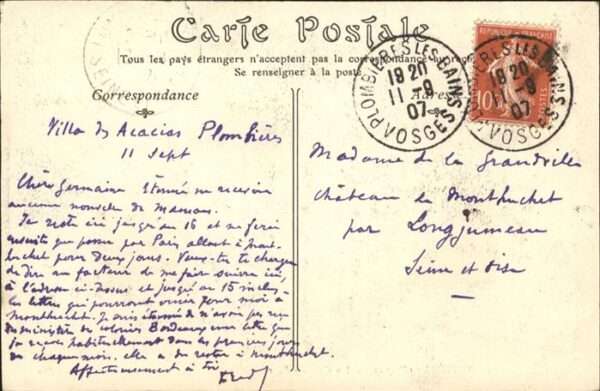 Carte Postale
Tous les pays étrangers n'acceptent pas la correspondance au recto
Se renseigner à la poste
Correspondance
PLOMBIÈRES LES BAINS
19 20
11 -9
07
VOSGES
PLOMBIÈRES LES BAINS
19 20
11 -9
07
VOSGES
10
POSTES
Villa des Acacias Plombières
11 Sept
Chère Germaine étonné ne recevoir
aucune nouvelle de Maman.
Je reste ici jusqu'au 16 et ne ferai
ensuite que passer par Paris allant à Mont-
huchet pour deux jours. Veux-tu te charger
de dire au facteur de me faire suivre ici,
à l'adresse ci-dessus et jusqu'au 15 inclus-
les lettres qui pourront arriver pour moi à
Monthuchet. Je suis étonné de n'avoir pas reçu
du ministère des colonies Bordeaux une lettre que
je reçois habituellement dans les premiers jours
de chaque mois. elle a dû rester à Monthuchet.
Affectueusement à toi
Madame de la Grandville
Château de Monthuchet
par Longjumeau
Seine et Oise